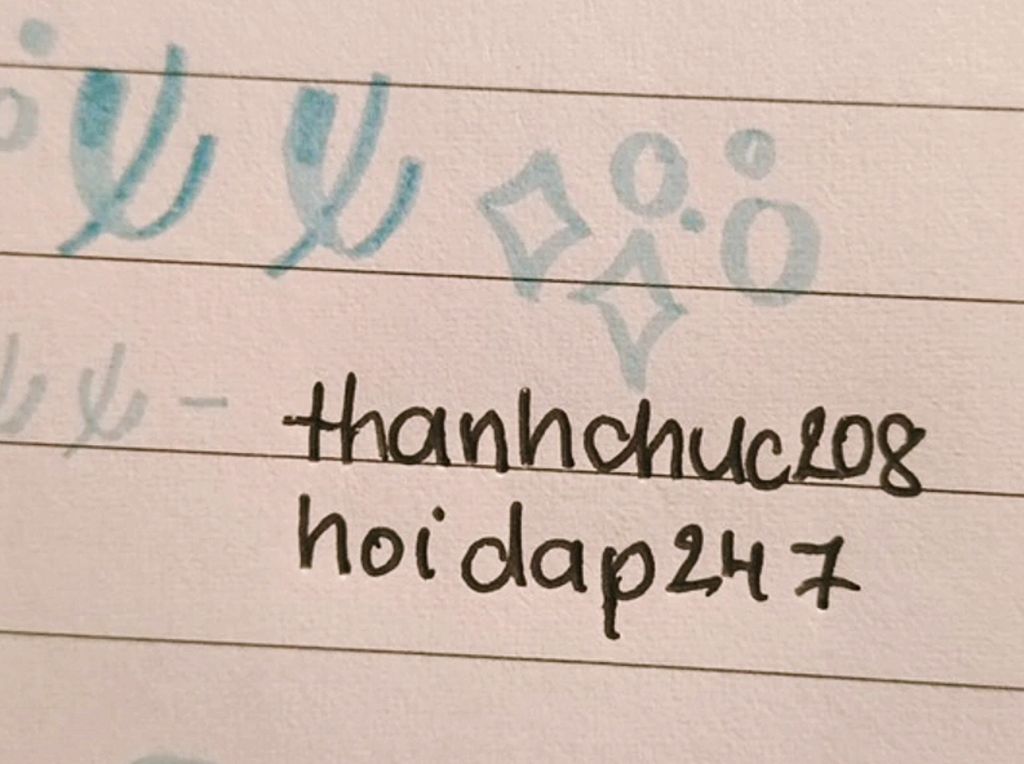 thanhchuc208
hoidap247